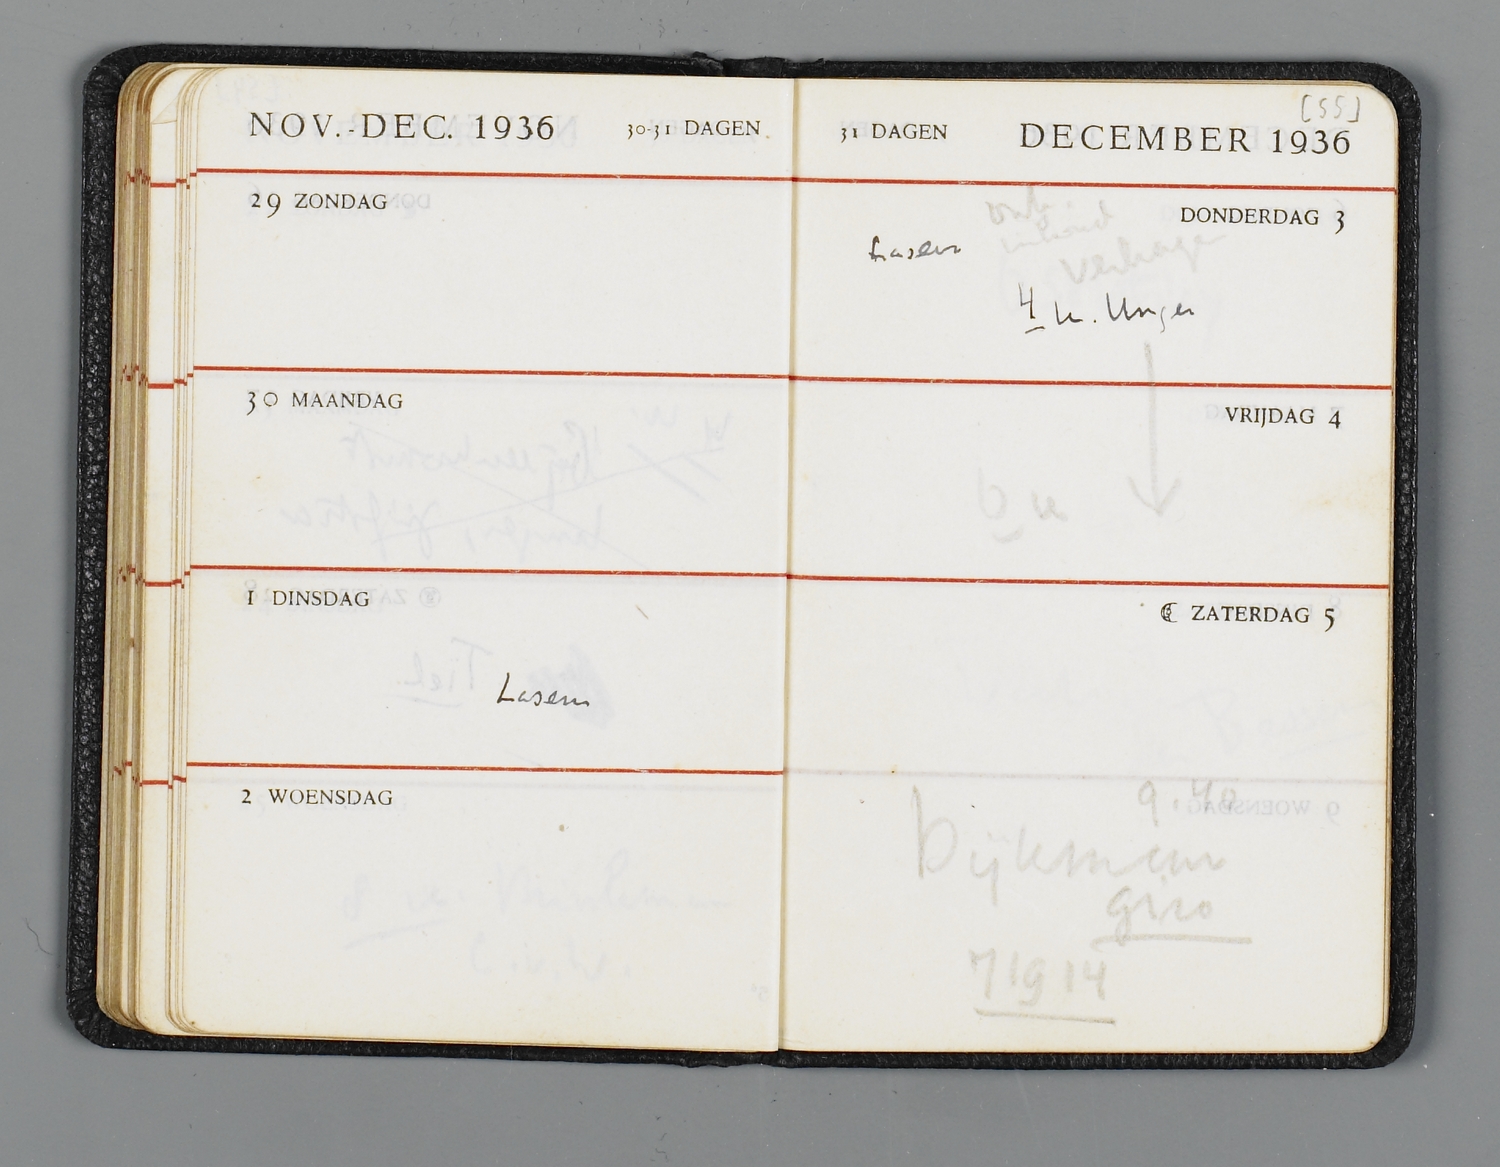 NOV.-DEC. 1936 30-31 DAGEN
29 ZONDAG
30 MAANDAG
1 DINSDAG
Lasem
2 WOENSDAG
[55]
31 DAGEN DECEMBER 1936
DONDERDAG 3
Lasem
4 u. Unger
VRIJDAG 4
ZATERDAG 5
9.40
Dijkman
giro
71914